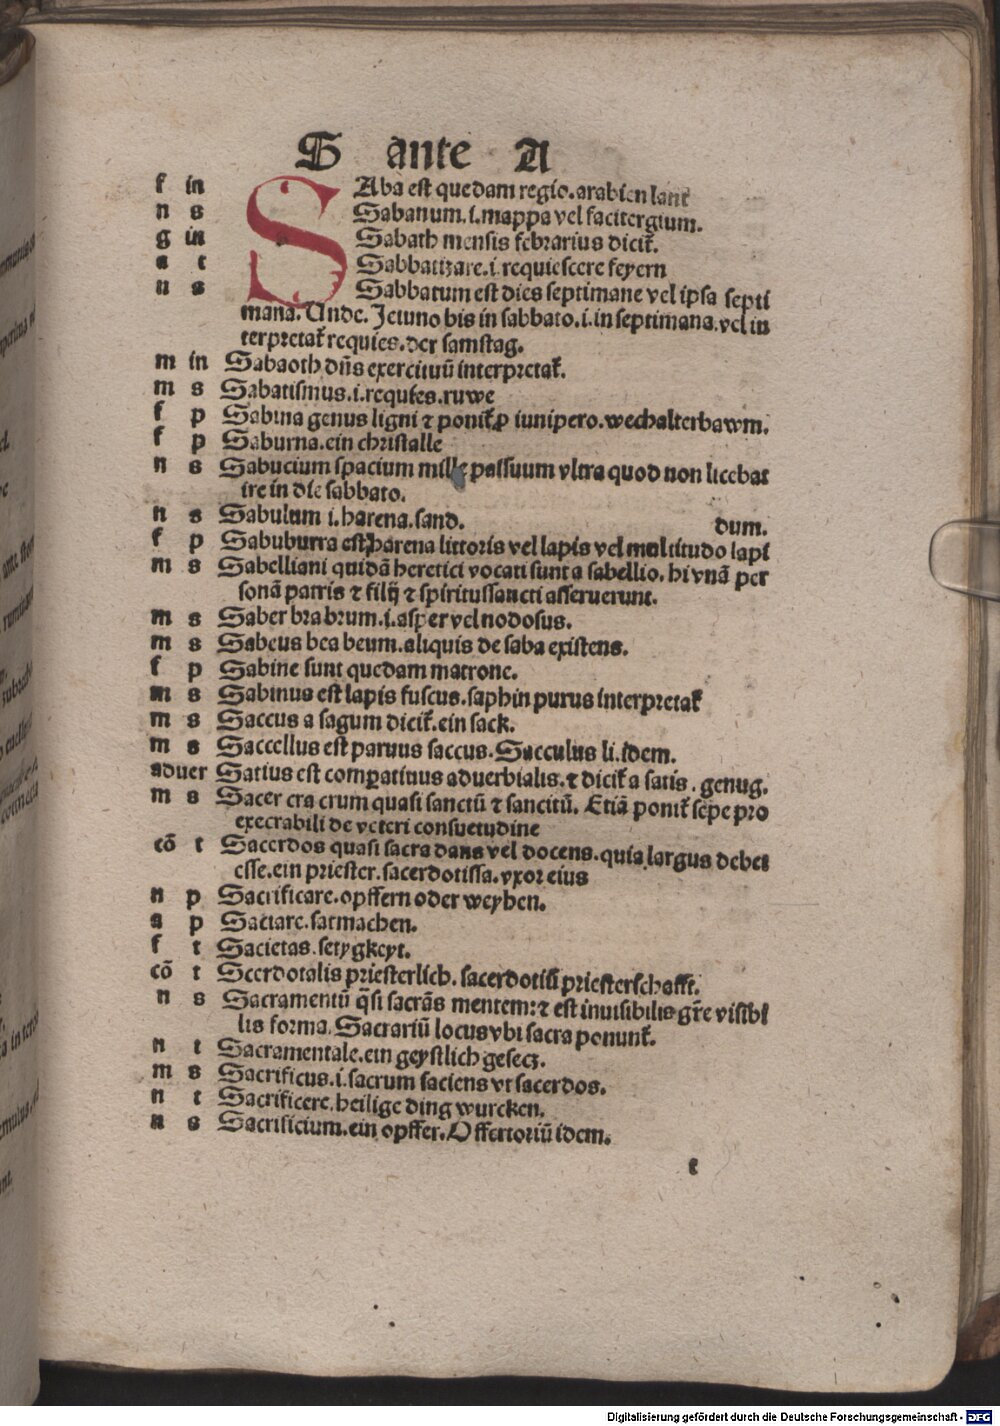 S ante A
f in SAba est quedam regio.arabien lant
n s Sabanum.i.mappa vel facitergium.
g in Sabath mensis febrarius dicit̄.
a t Sabbatizare.i.requiescere feyern
n s Sabbatum est dies septimane vel ipsa septi
mana. Unde. Jeiuno bis in sabbato.i.in septimana.vel in
terpretat̄ requies.der samstag.
m in Sabaoth dn̄s exercituū interpretat̄.
m s Sabatismus.i.requies.ruwe
f p Sabina genus ligni ⁊ ponit̄ ꝓ iunipero.wechalterbawm.
f p Saburna.ein christalle
n s Sabucium spacium mille passuum vltra quod non licebat
ire in die sabbato.
n s Sabulum i.harena.sand. dum.
f p Sabuburra est harena littoris vel lapis vel multitudo lapi
m s Sabelliani quidā heretici vocati sunt a sabellio. hi vnā per
sonā patris ⁊ filij ⁊ spiritussancti asseruerunt.
m s Saber bra brum.i.asper vel nodosus.
m s Sabeus bea beum.aliquis de saba existens.
f p Sabine sunt quedam matrone.
m s Sabinus est lapis fuscus.saphin purus interpretat̄
m s Saccus a sagum dicit̄.ein sack.
m s Saccellus est paruus saccus.Sacculus li.idem.
aduer Satius est comꝑatiuus aduerbialis.⁊ dicit̄ a satis.genug.
m s Sacer cra crum quasi sanctū ⁊ sancitū. Etiā ponit̄ sepe pro
execrabili de veteri consuetudine
cō t Sacerdos quasi sacra dans vel docens.quia largus debet
esse.ein priester.sacerdotissa.vxor eius
n p Sacrificare.opffern oder weyhen.
a p Saciare.satmachen.
f t Sacietas.setygkeyt.
cō t Scerdotalis priesterlich.sacerdotiū priesterschafft.
n s Sacramentū q̄si sacrās mentem:⁊ est inuisibilis gr̄e visibi
lis forma.Sacrariū locus vbi sacra ponunt̄.
n t Sacramentale.ein geystlich gesecz.
m s Sacrificus.i.sacrum faciens vt sacerdos.
n t Sacrificere.heilige ding wurcken.
n s Sacrificium.ein opffer.Offertoriū idem.
t
Digitalisierung gefördert durch die Deutsche Forschungsgemeinschaft - DFG